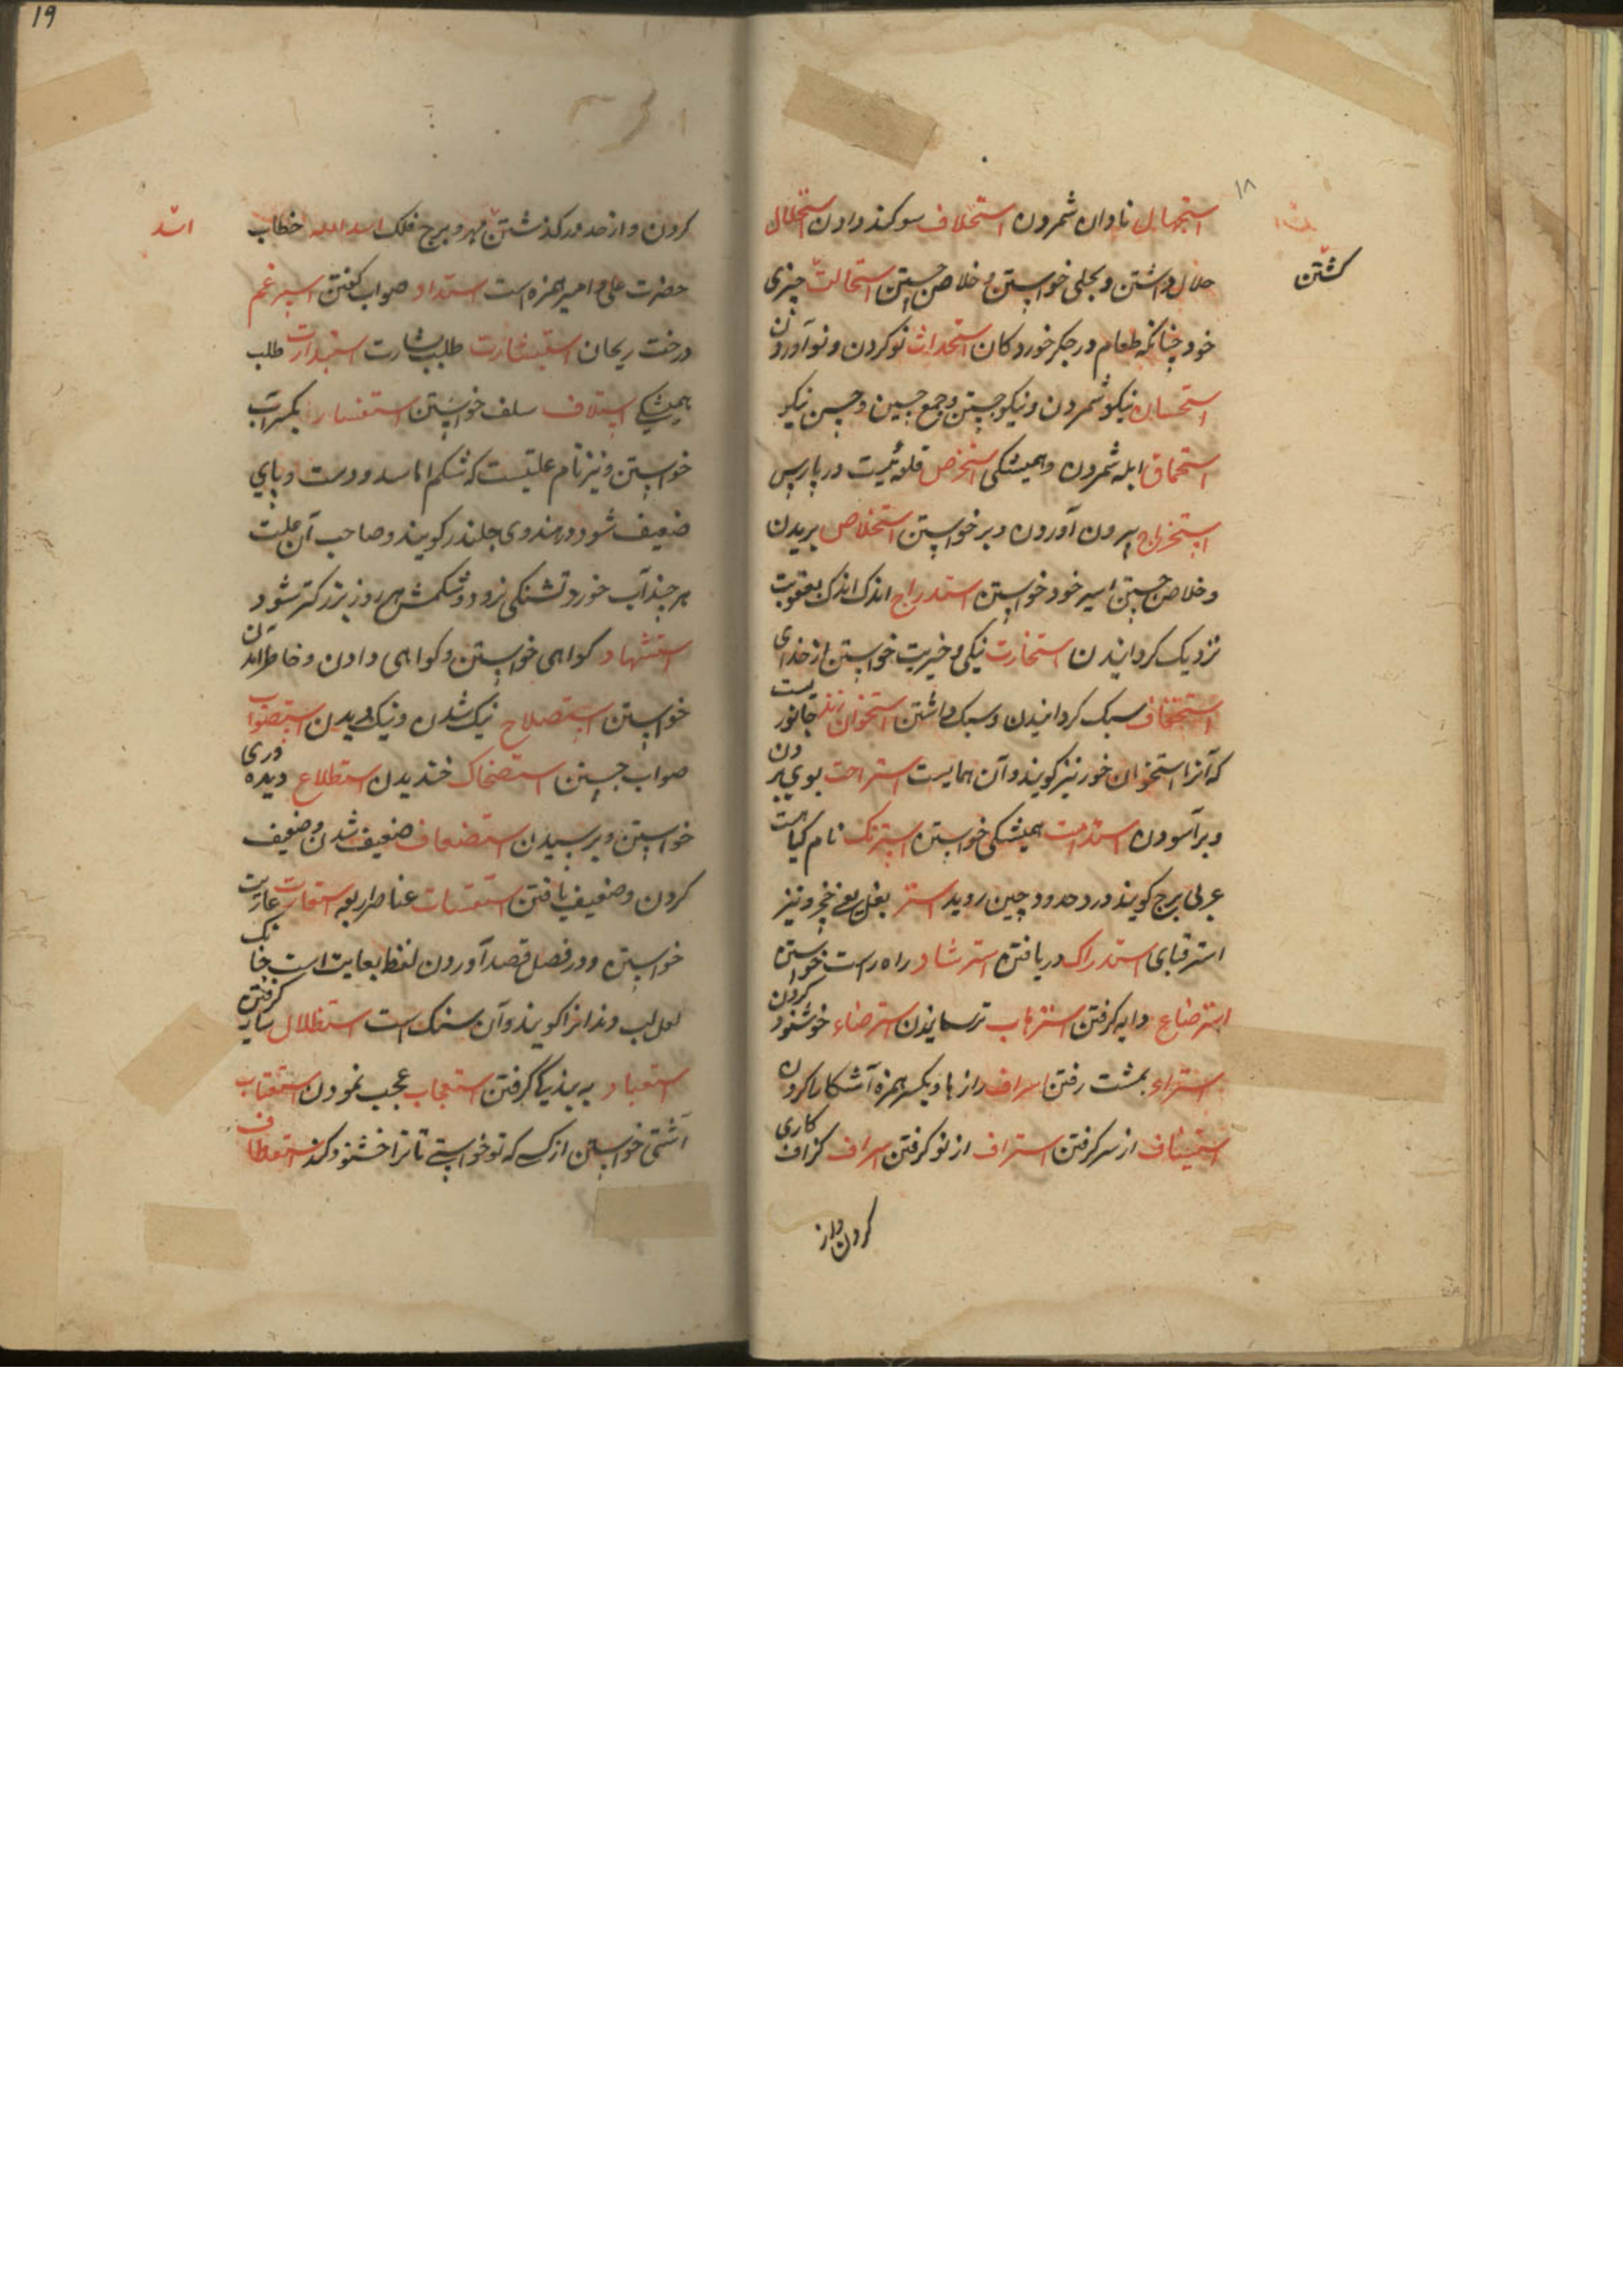 ۱۸
استجهال نادان شمردن استحلاف سوکند دادن استحلال
کشتن
حلال داشتن و بحلی خواستن و خلاص جستن استحالت چیزی
خود چنانکه طعام در جکر خورد کان استحداث نو کردن و نو آوردن
استحسان نیکو شمردن و نیکو جستن و جمع جبین و حسن نیکو
استحماق ابله شمردن و همیشکی قلعه ئیست در پارس
استخراج بیرون آوردن و بر خواستن استخلاص بریدن
و خلاص جستن اسیر خود خواستن استدراج اندک اندک بعقوبت
نزدیک کردانیدن استخارت نیکی و خیریت خواستن از خدای
استخفاف سبک کردانیدن و سبک داشتن استخوان رند جانوریست
که آنرا استخوان خور نیز کویند و آن همایست استراحت بوی بردن
و بر آسودن استدامت همیشکی خواستن استرنک نام کیاهست
عربی برج کویند در حدود چین روید استر بغل یعنی خچر و نیز
استر قبای استدراک دریافتن استرشاد راه راست خواستن
استرضاع دایه کرفتن استرهاب ترسانیدن استرضاء خوشنود کردن
بمشت رفتن اسراف رازها و بکسر همزه آشکارا کردن
استیناف از سر کرفتن از نو کرفتن اسراف کزاف کاری
کردن و از
19
کردن و از حد در کذشتن مهر و برج فلک اسد الله خطاب
اسد
حضرت علی و امیر همزه است استداد صواب کفتن اسپرغم
درخت ریحان استبشارت طلب بشارت طلب
همیشکی استلاف سلف خواستن
خواستن و نیز نام علتیست که شکم اماسد و دست و پای
ضعیف شود در هندوی جلندر کویند و صاحب آن علت
هر چند آب خورد تشنکی نرود و شکمش هر روز بزرکتر شود
استشهاد کواهی خواستن و کواهی دادن و خاطر آمدن
خواستن استصلاح نیک شدن و نیک دیدن استصواب
صواب جستن استضحاک خندیدن استطلاع دیده وری
خواستن و پرسیدن استضعاف ضعیف شدن و ضعیف
کردن و ضعیف یافتن استقسات عناصر اربعه استعارت عاریت
خواستن و در فصل قصد آوردن لفظ بعاریت است چنانک
لعل لب و دندانرا کویند و آن سنک است استظلال سایه کرفتن
استعباد به بندکی کرفتن استعجاب عجب نمودن استعتاب
آشتی خواستن از کسی که تو خواستی تا ترا خشنود کند استعطاف